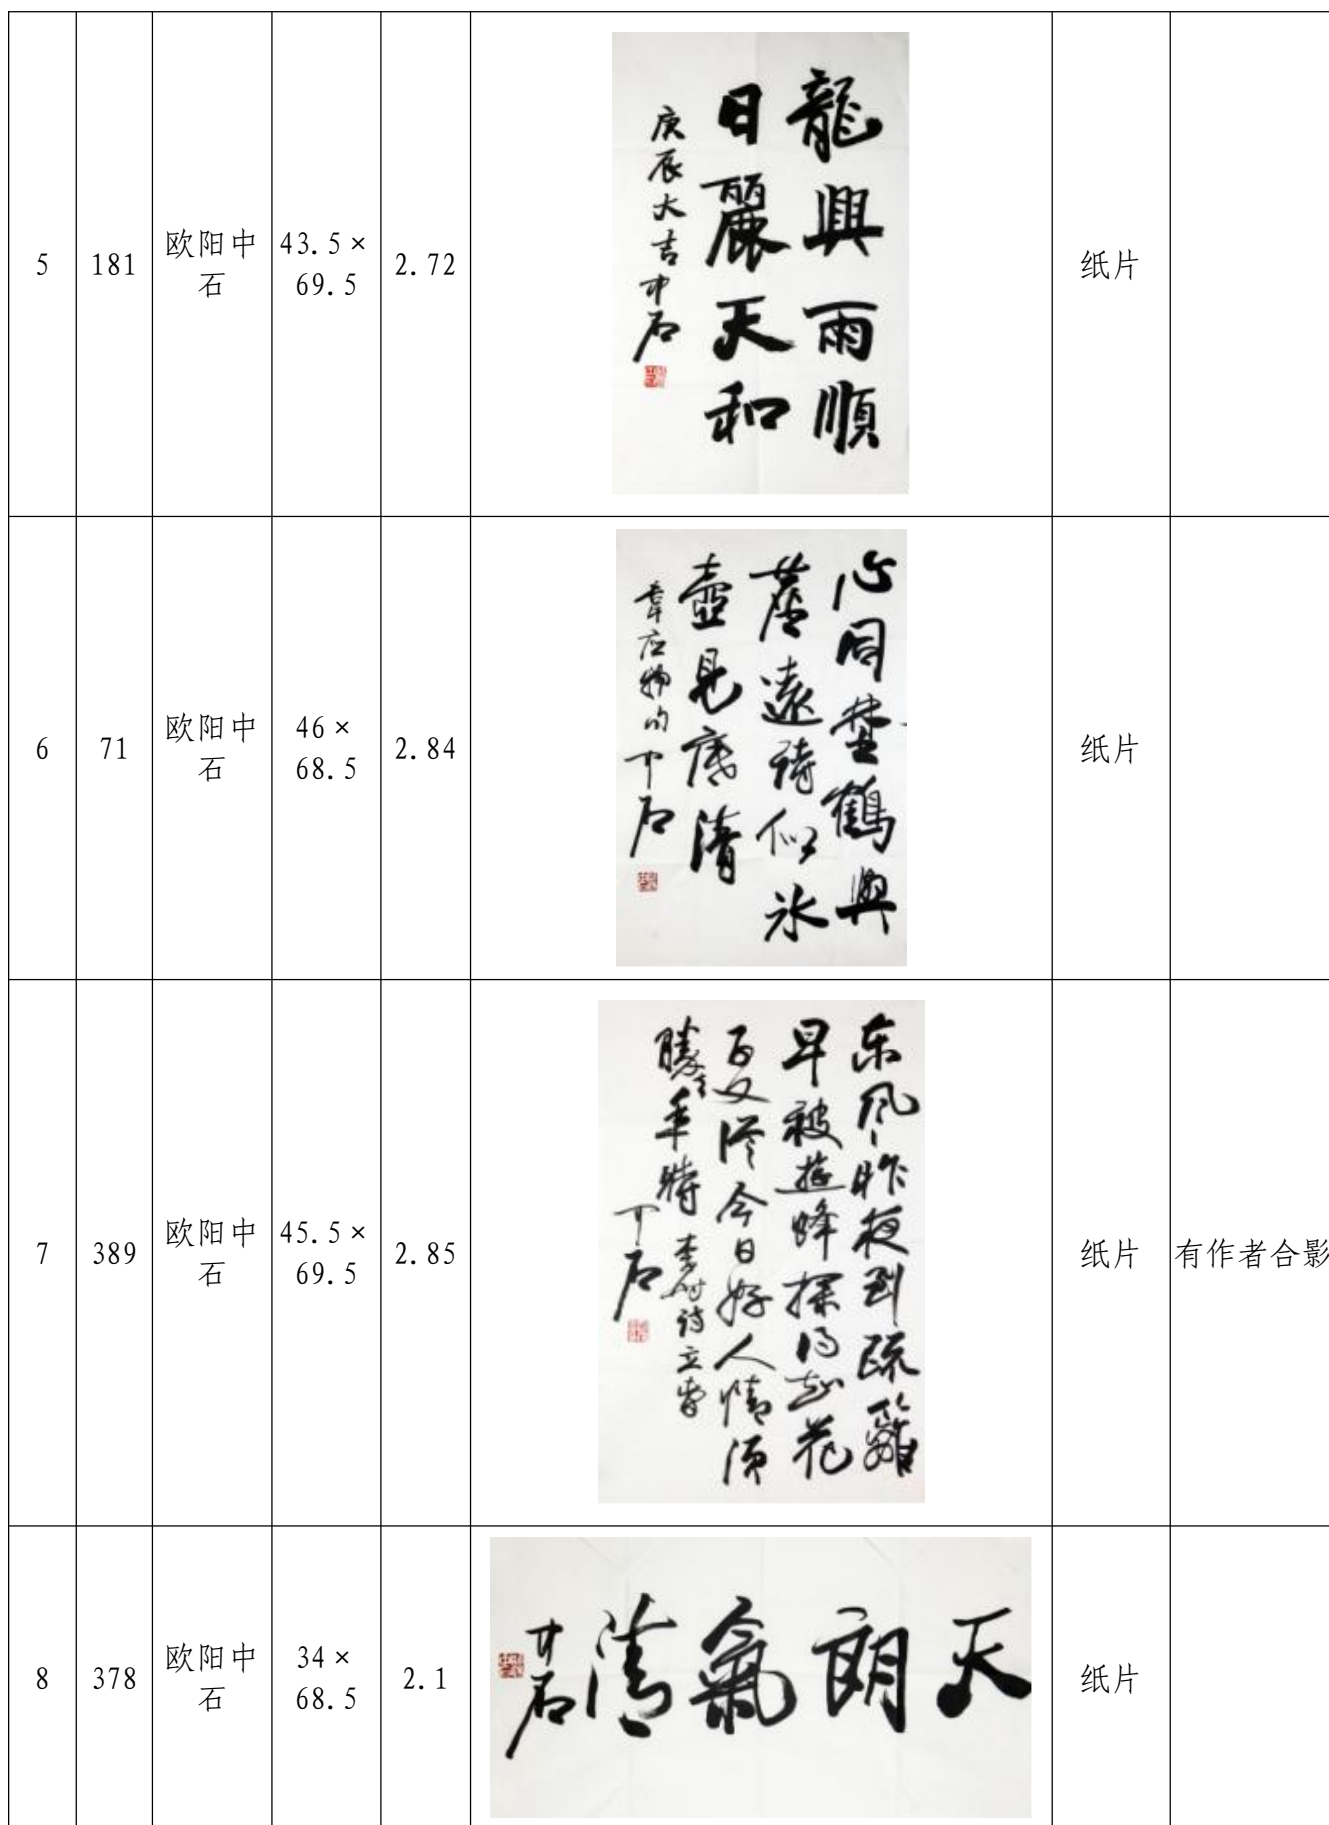 5
181
欧阳中
石
43.5×
69.5
2.72
龍興雨順
日麗天和
庚辰大吉中石
纸片
6
71
欧阳中
石
46×
68.5
2.84
心同野鶴與
塵遠詩似冰
壺見底清
韋应物句中石
纸片
7
389
欧阳中
石
45.5×
69.5
2.85
东风昨夜到疏籬
早被遊蜂探得知花
百又澄今日好人情须
勝去年時
中石
纸片
有作者合影
8
378
欧阳中
石
34×
68.5
2.1
天朗氣清
中石
纸片